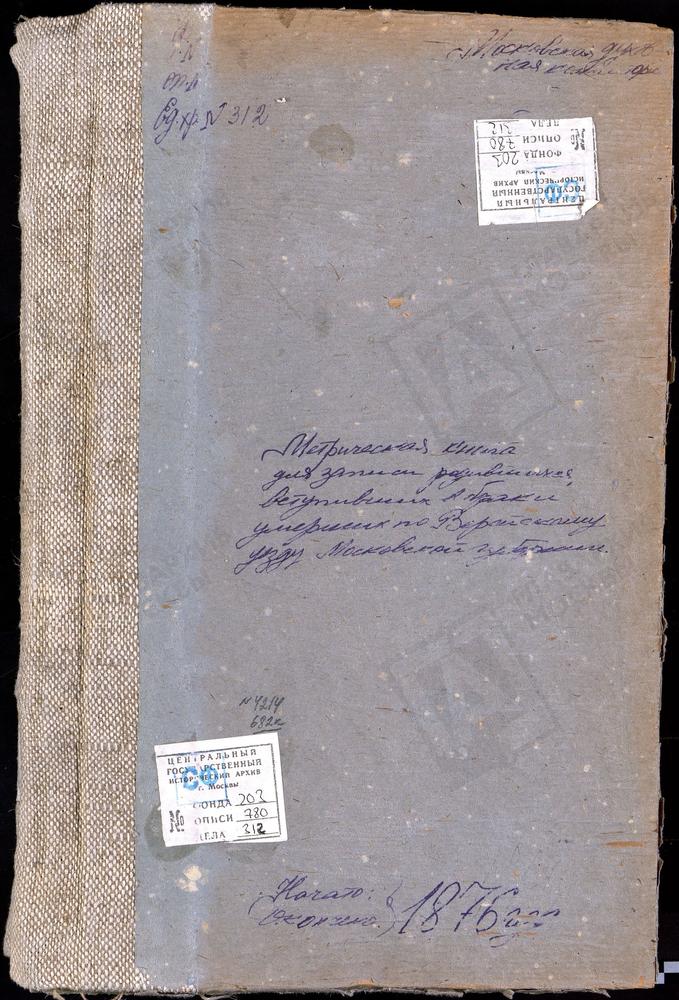 Московская духов
ная
Ед. хр. N 312
ЦЕНТРАЛЬНЫЙ
ГОСУДАРСТВЕННЫЙ
ИСТОРИЧЕСКИЙ АРХИВ
ФОНДА 203
ОПИСИ 780
ДЕЛА 312
Метрическая книга
для записи родившихся,
вступивших в браки
умерших по Верейскому
уезду Московской губернии.
N 4214
682л
ЦЕНТРАЛЬНЫЙ
ГОСУДАРСТВЕННЫЙ
ИСТОРИЧЕСКИЙ АРХИВ
г. Москвы
СФ
ФОНДА 203
ОПИСИ 780
ДЕЛА 312
Начато:
Окончено: 1876 год